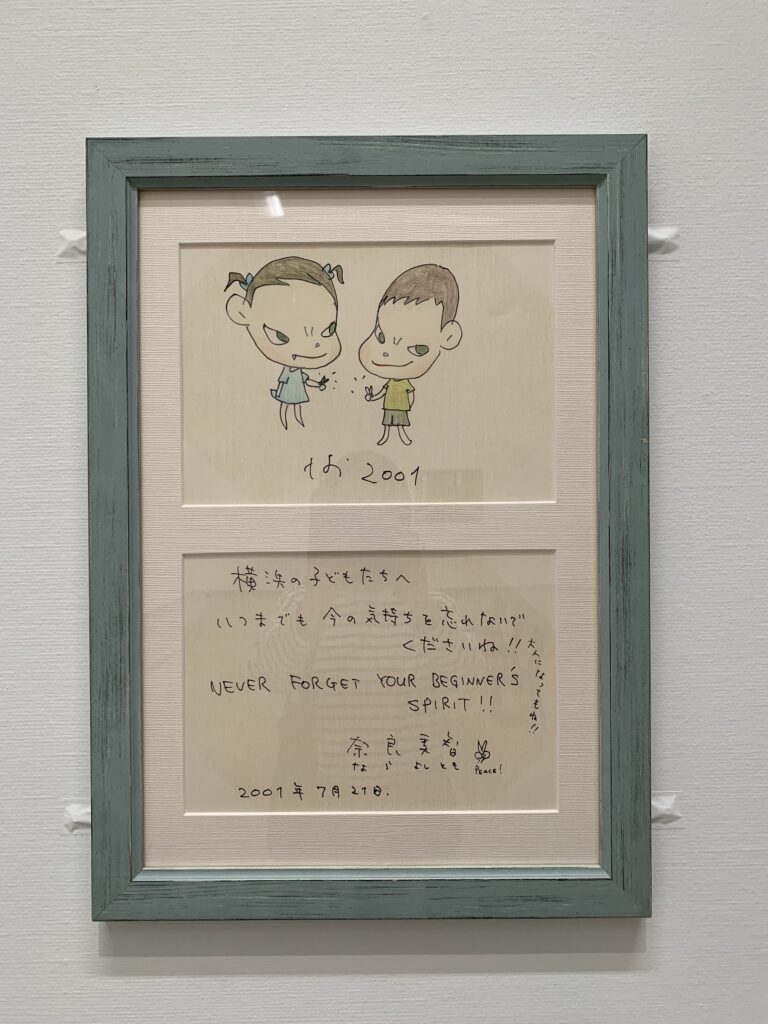 2001
横浜の子どもたちへ
いつまでも 今の気持ちを忘れないで
くださいね!!
大人になってもね!!
NEVER FORGET YOUR BEGINNER'S
SPIRIT!!
奈良美智
なら よしとも
PEACE!
2001年 7月21日.